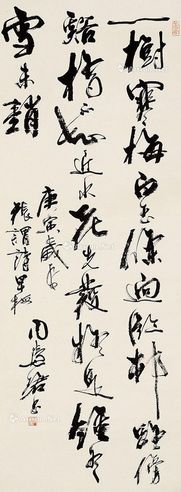 一樹寒梅白玉條迥臨村路傍
谿橋不知近水花先發疑是經冬
雪未銷
庚寅歲
張謂詩早梅
周慧珺書